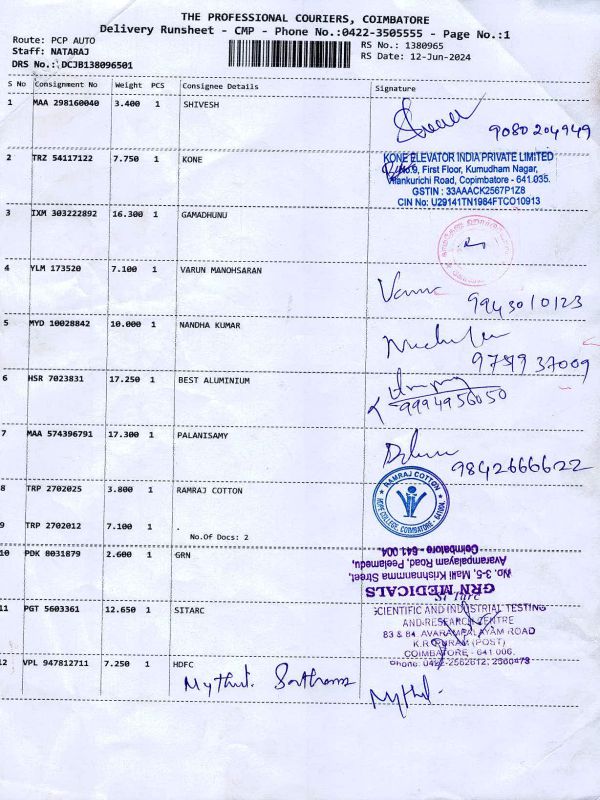 THE PROFESSIONAL COURIERS, COIMBATORE
Delivery Runsheet - CMP - Phone No.:0422-3505555 - Page No.:1
Route: PCP AUTO
Staff: NATARAJ
DRS No.: DCJB138096501
RS No.: 1380965
RS Date: 12-Jun-2024
S No Consignment No Weight PCS Consignee Details Signature
1 MAA 298160040 3.400 1 SHIVESH
9080204949
2 TRZ 54117122 7.750 1 KONE
KONE ELEVATOR INDIA PRIVATE LIMITED
No.9, First Floor, Kumudham Nagar,
Vilankurichi Road, Coimbatore - 641 035.
GSTIN : 33AAACK2567P1Z8
CIN No: U29141TN1984FTCO10913
3 IXM 303222892 16.300 1 GAMADHUNU
4 YLM 173520 7.100 1 VARUN MANOHSARAN
9943010123
5 MYD 10028842 10.000 1 NANDHA KUMAR
6 HSR 7023831 17.250 1 BEST ALUMINIUM
9994956050
7 MAA 574396791 17.300 1 PALANISAMY
9842666622
8 TRP 2702025 3.800 1 RAMRAJ COTTON
RAMRAJ COTTON
HOPE COLLEGE, COIMBATORE
9 TRP 2702012 7.100 1 .
No.Of Docs: 2
10 PDK 8031879 2.600 1 GRN
GRN MEDICALS
No. 3-5, Makil Krishnamma Street,
Avarampalayam Road, Peelamedu,
Coimbatore - 641 004.
11 PGT 5603361 12.650 1 SITARC
SCIENTIFIC AND INDUSTRIAL TESTING
AND RESEARCH CENTRE
83 & 84, AVARAMPALAYAM ROAD
K.R.PURAM (POST)
COIMBATORE - 641 006.
Phone: 0422-2562612, 2560473
12 VPL 947812711 7.250 1 HDFC